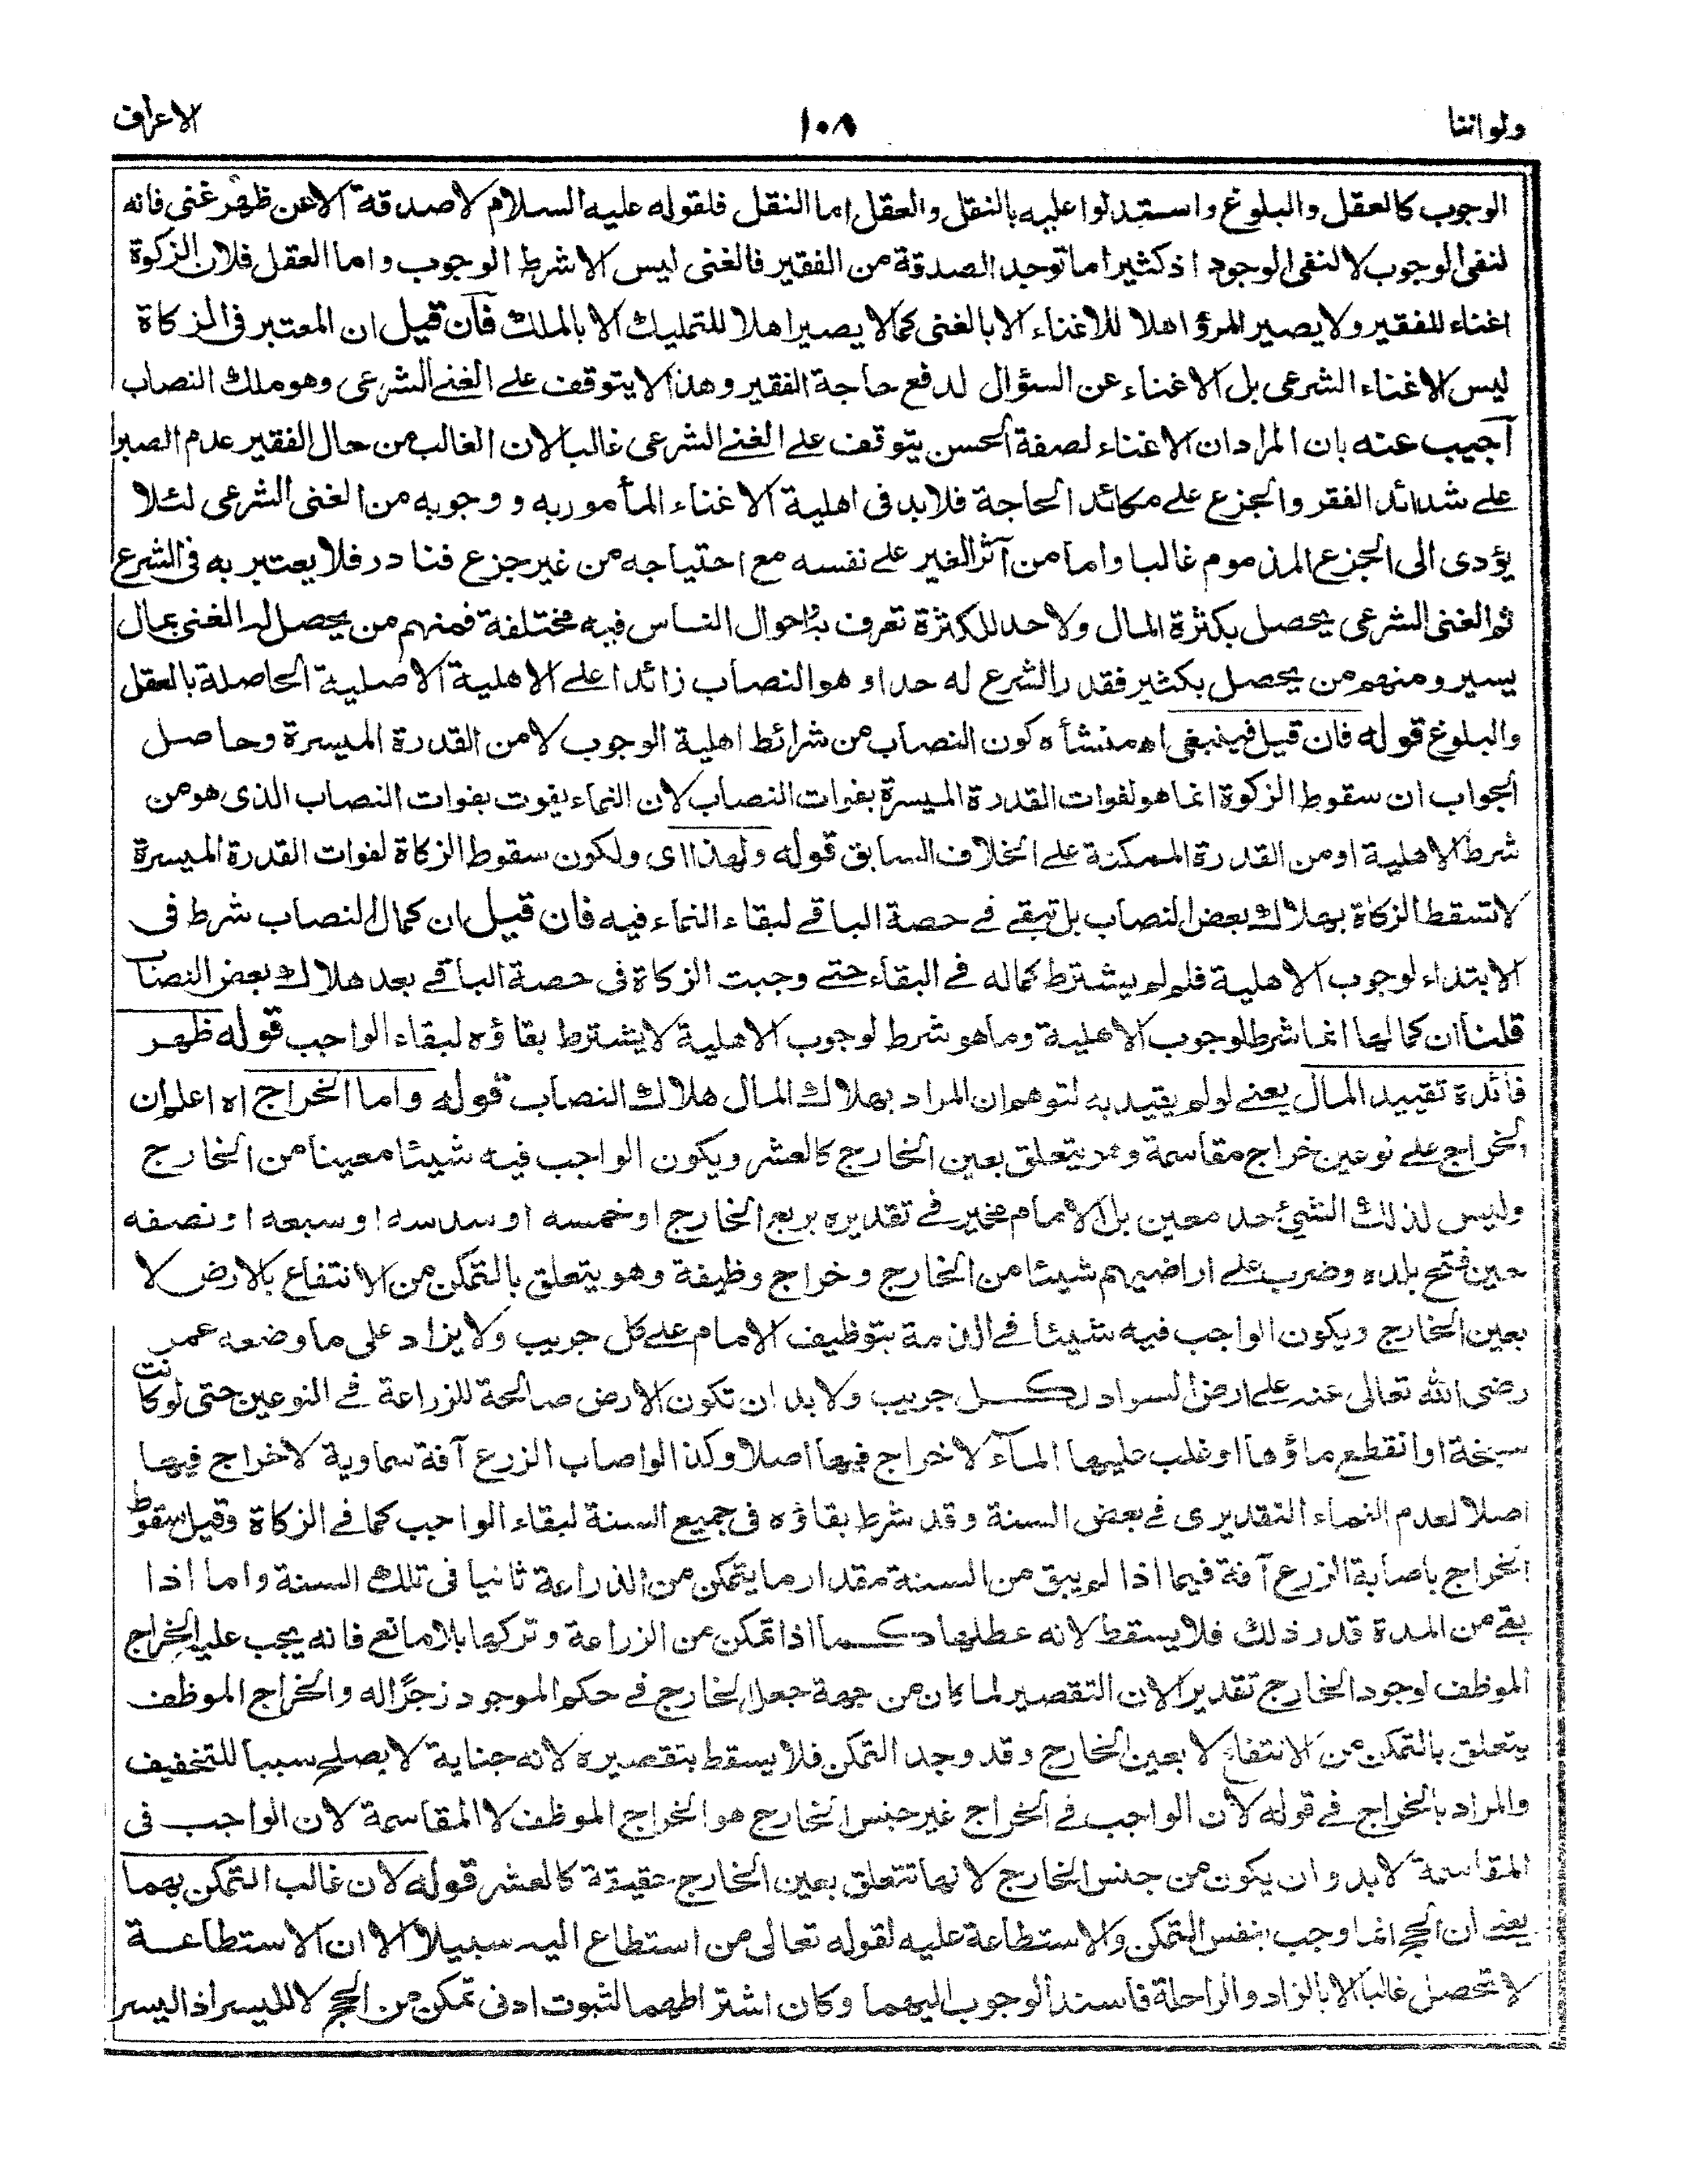 ولو اننا
١٠٨
الاعراف
الوجوب كالعقل والبلوغ واستدلوا عليه بالنقل والعقل اما النقل فلقوله عليه السلام لاصدقة الاعن ظهر غنى فانه
لنفى الوجوب لا لنفى الوجود اذ كثيرا ما توجد الصدقة من الفقير فالغنى ليس الا شرط الوجوب واما العقل فلان الزكوة
اغناء للفقير ولا يصير المرؤ اهلا للاغناء الا بالغنى كما لا يصير اهلا للتمليك الا بالملك فان قيل ان المعتبر فى الزكاة
ليس الاغناء الشرعى بل الاغناء عن السؤال لدفع حاجة الفقير وهذا لا يتوقف على الغنے الشرعى وهو ملك النصاب
آجيب عنه بان المراد ان الاغناء لصفة الحسن يتوقف على الغنے الشرعى غالبا لان الغالب من حال الفقير عدم الصبر
على شدائد الفقر والجزع على مكائد الحاجة فلابد فى اهلية الاغناء المأمور به و وجوبه من الغنى الشرعى لئلا
يؤدى الى الجزع المذموم غالبا واما من آثر الغير على نفسه مع احتياجه من غير جزع فنادر فلا يعتبر به فى الشرع
ثم الغنى الشرعى يحصل بكثرة المال ولا حد للكثرة تعرف به احوال الناس فيه مختلفة فمنهم من يحصل له الغنى بمال
يسير ومنهم من يحصل بكثير فقدر الشرع له حدا وهو النصاب زائدا على الاهلية الاصلية الحاصلة بالعقل
والبلوغ قوله فان قيل فينبغى اه منشأه كون النصاب من شرائط اهلية الوجوب لا من القدرة الميسرة وحاصل
الجواب ان سقوط الزكوة انما هو لفوات القدرة الميسرة بفوات النصاب لان النماء يفوت بفوات النصاب الذى هو من
شرط الاهلية او من القدرة الممكنة على الخلاف السابق قوله ولهذا اى ولكون سقوط الزكاة لفوات القدرة الميسرة
لا تسقط الزكاة بهلاك بعض النصاب بل تبقے فے حصة الباقے لبقاء النماء فيه فان قيل ان كمال النصاب شرط فى
الابتداء لوجوب الاهلية فلم لم يشترط كماله فے البقاء حتے وجبت الزكاة فى حصة الباقے بعد هلاك بعض النصاب
قلنا ان كمالها انما شرط لوجوب الاهلية وما هو شرط لوجوب الاهلية لا يشترط بقاؤه لبقاء الواجب قوله ظهر
فائدة تقييد المال يعنے لو لم يقيد به لتوهم ان المراد بهلاك المال هلاك النصاب قوله واما الخراج اه اعلم ان
الخراج على نوعين خراج مقاسمة وهو يتعلق بعين الخارج كالعشر ويكون الواجب فيه شيئا معينا من الخارج
وليس لذلك الشئ حد معين بل الامام مخير فے تقديره بربع الخارج او خمسه او سدسه او سبعه او نصفه
حين فتح بلده وضرب على اراضيهم شيئا من الخارج وخراج وظيفة وهو يتعلق بالتمكن من الانتفاع بالارض لا
بعين الخارج ويكون الواجب فيه شيئا فے الذمة بتوظيف الامام على كل جريب ولا يزاد على ما وضعه عمر
رضى الله تعالى عنه على ارض السواد لكل جريب ولا بد ان تكون الارض صالحة للزراعة فے النوعين حتى لو كانت
سبخة او انقطع ماؤها او غلب عليها المآء لا خراج فيها اصلا وكذا لو اصاب الزرع آفة سماوية لا خراج فيها
اصلا لعدم النماء التقديرى فے بعض السنة وقد شرط بقاؤه فى جميع السنة لبقاء الواجب كما فے الزكاة وقيل سقوط
الخراج باصابة الزرع آفة فيما اذا لم يبق من السنة مقدار ما يتمكن من الذراعة ثانيا فى تلك السنة واما اذا
بقے من المدة قدر ذلك فلا يسقط لانه عطلها كما اذا تمكن من الزراعة وتركها بلا مانع فانه يجب عليه الخراج
الموظف لوجود الخارج تقديرا لان التقصير لما كان من جهة جعل الخارج فے حكم الموجود زجرًا له والخراج الموظف
يتعلق بالتمكن من الانتفاع لا بعين الخارج وقد وجد التمكن فلا يسقط بتقصيره لانه جناية لا يصلح سببا للتخفيف
والمراد بالخراج فے قوله لان الواجب فے الخراج غير جنس الخارج هو الخراج الموظف لا المقاسمة لان الواجب فى
المقاسمة لابد وان يكون من جنس الخارج لانها تتعلق بعين الخارج حقيقة كالعشر قوله لان غالب التمكن بهما
يعنے ان الحج انما وجب بنفس التمكن والاستطاعة عليه لقوله تعالى من استطاع اليه سبيلا الا ان الاستطاعة
لا تحصل غالبا الا بالزاد والراحلة فاسند الوجوب اليهما وكان اشتراطهما لثبوت ادنى تمكن من الحج لا لليسر اذ اليسر